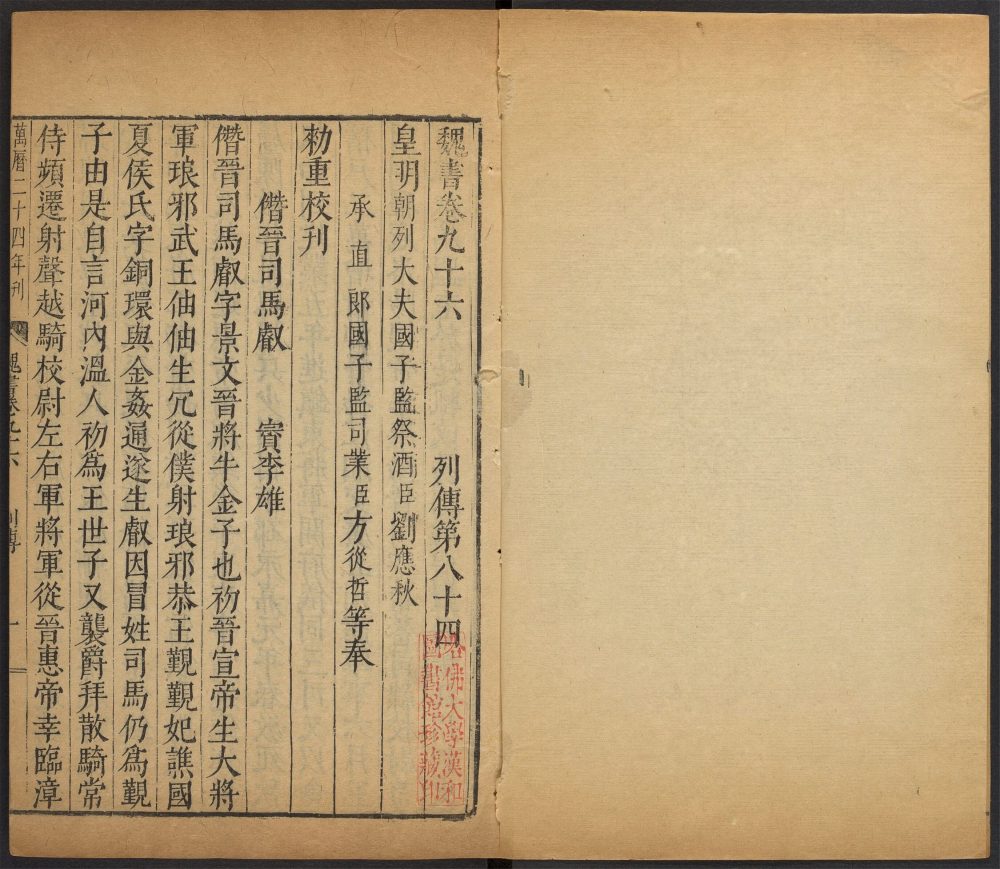 魏書卷九十六 列傳第八十四
皇明朝列大夫國子監祭酒臣劉應秋
承直郎國子監司業臣方從哲等奉
勑重校刊
僭晉司馬叡 賨李雄
僭晉司馬叡字景文晉將牛金子也初晉宣帝生大將
軍琅邪武王伷伷生冗從僕射琅邪恭王覲覲妃譙國
夏侯氏字銅環與金姦通遂生叡因冒姓司馬仍爲覲
子由是自言河內溫人初爲王世子又襲爵拜散騎常
侍頻遷射聲越騎校尉左右軍將軍從晉惠帝幸臨漳
萬曆二十四年刊 魏書卷九十六 列傳 一
哈佛大學漢和
圖書館珍藏印